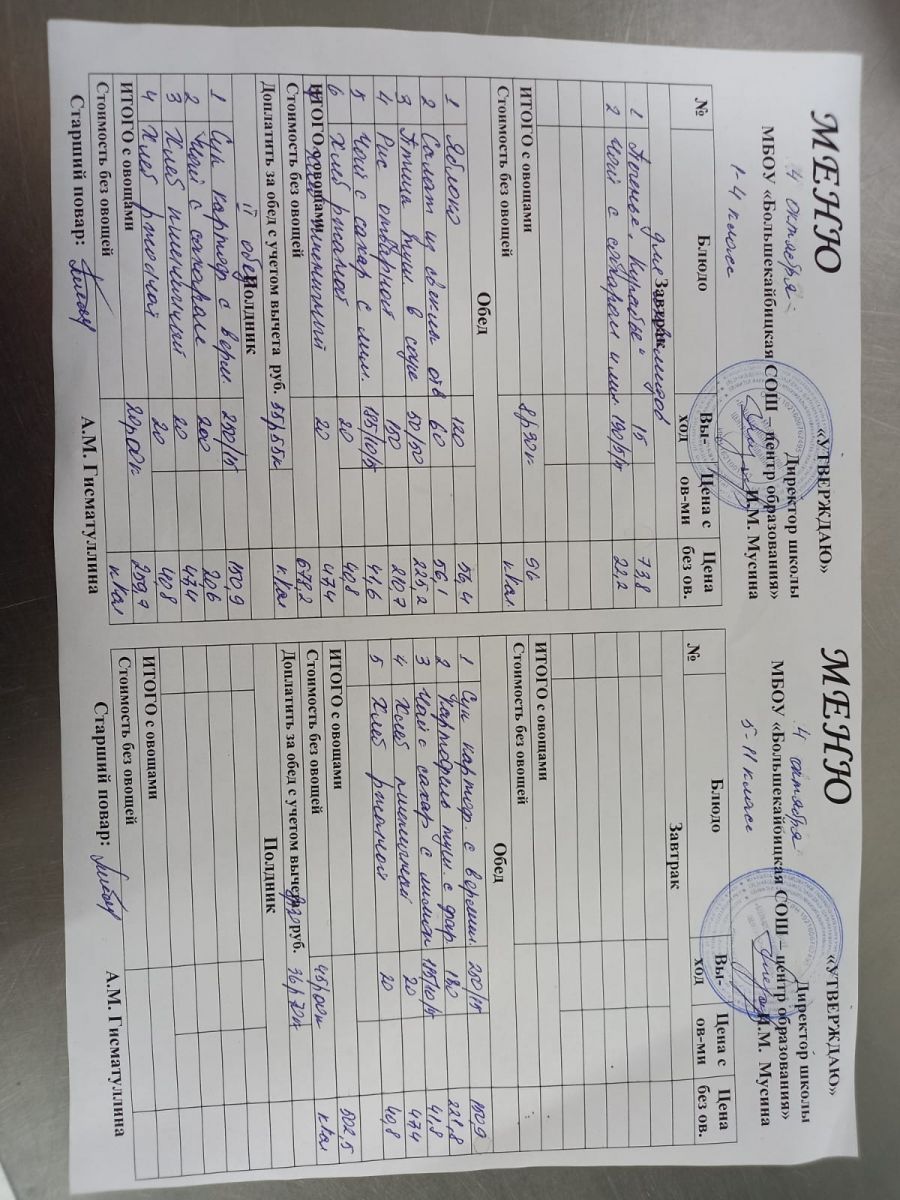 МЕНЮ
«УТВЕРЖДАЮ»
Директор школы
МБОУ «Большекайбицкая СОШ – центр образования»
4 октября
И.М. Мусина
1-4 класс
№ Блюдо Вы-ход Цена с ов-ми Цена без ов.
Завтрак
1 Печенье "Курабье" 15 73,8
2 Чай с сахаром 22,2
ИТОГО с овощами 8р30к 96
Стоимость без овощей ккал
Обед
1 Яблоко 120 56,4
2 Салат из свеклы отв 60 56,1
3 Птица туш. в соусе 50/50 225,2
4 Рис отварной 150 210,7
5 Чай с сахар с лим. 185/10/5 41,6
6 Хлеб ржаной 20 40,8
ИТОГО с овощами
Хлеб пшеничный 20 47,4
Стоимость без овощей 678,2
Доплатить за обед с учетом вычета руб. 55р55к ккал
Полдник
II обед
1 Суп картоф с верм. 250/15 150,9
2 Чай с сахаром 200 20,6
3 Хлеб пшеничный 20 47,4
4 Хлеб ржаной 20 40,8
ИТОГО с овощами 20р00к 259,7
Стоимость без овощей ккал
Старший повар: А.М. Гисматуллина
МЕНЮ
«УТВЕРЖДАЮ»
Директор школы
МБОУ «Большекайбицкая СОШ – центр образования»
4 октября
И.М. Мусина
5-11 класс
№ Блюдо Вы-ход Цена с ов-ми Цена без ов.
Завтрак
ИТОГО с овощами
Стоимость без овощей
Обед
1 Суп картоф. с вермиш. 250/15 150,9
2 Картофель туш. с фар 180 221,8
3 Чай с сахар с лимон 185/10/5 41,8
4 Хлеб пшеничной 20 47,4
5 Хлеб ржаной 20 40,8
ИТОГО с овощами 45р00к 502,5
Стоимость без овощей ккал
Доплатить за обед с учетом вычета руб. 36р70к
Полдник
ИТОГО с овощами
Стоимость без овощей
Старший повар: А.М. Гисматуллина